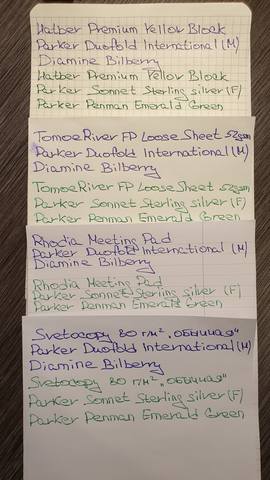 Hatber Premium Yellow Block
Parker Duofold International (M)
Diamine Bilberry
Hatber Premium Yellow Block
Parker Sonnet Sterling silver (F)
Parker Penman Emerald Green
TomoeRiver FP Loose Sheet 52gsm
Parker Duofold International (M)
Diamine Bilberry
TomoeRiver FP Loose Sheet 52gsm
Parker Sonnet Sterling silver (F)
Parker Penman Emerald Green
Rhodia Meeting Pad
Parker Duofold International (M)
Diamine Bilberry
Rhodia Meeting Pad
Parker Sonnet Sterling silver (F)
Parker Penman Emerald Green
Svetocopy 80 г/м² „обычная“
Parker Duofold International (M)
Diamine Bilberry
Svetocopy 80 г/м² „обычная“
Parker Sonnet Sterling silver (F)
Parker Penman Emerald Green